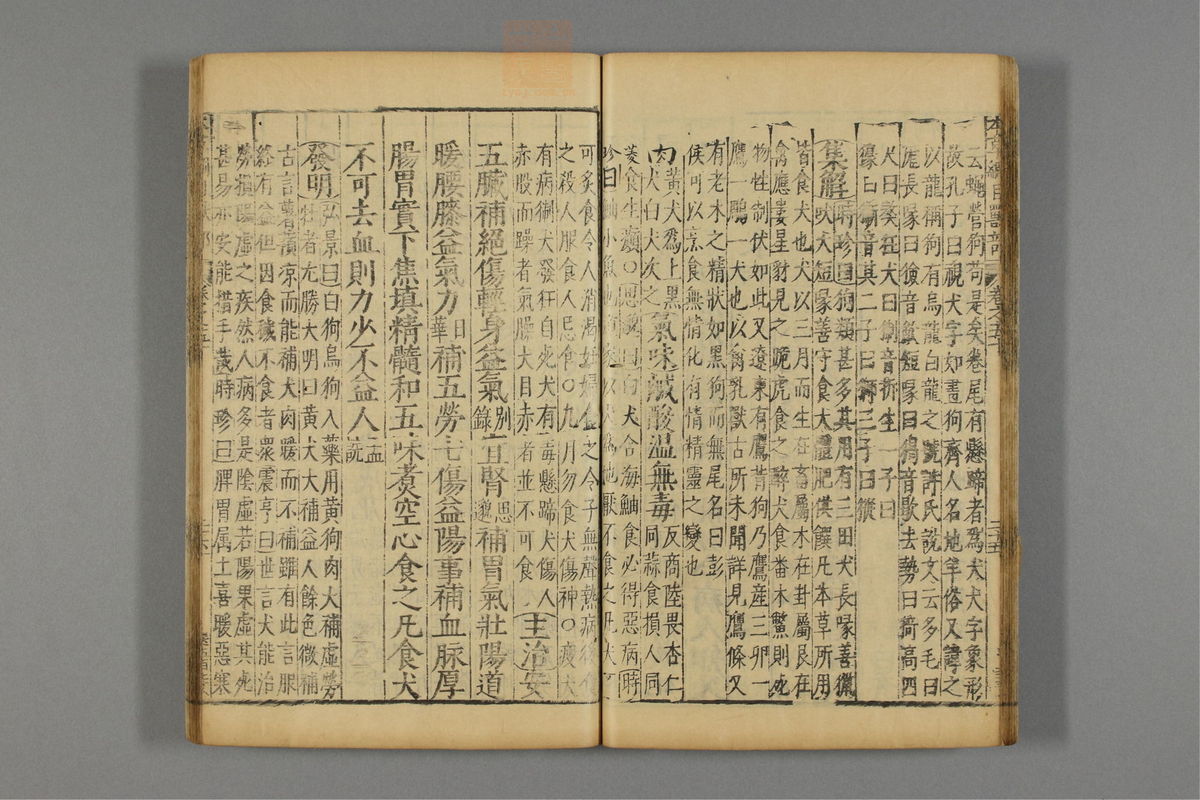 云蠅營狗苟是矣卷尾有懸蹄者爲犬犬字象形
故孔子曰視犬字如畫狗齊人名地羊俗又諱之
以龍稱狗有烏龍白龍之號許氏說文云多毛曰
尨長喙曰獫音斂短喙曰猲音歇去勢曰猗高四
尺曰獒狂犬曰猘音折生一子曰
獿曰 音其二子曰獅三子曰獵
集解時珍曰狗類甚多其用有三田犬長喙善獵
吠犬短喙善守食犬體肥供饌凡本草所用
皆食犬也犬以三月而生在畜屬木在卦屬艮在
禽應婁星豺見之跪虎食之醉犬食番木鱉則死
物性制伏如此又遼東有鷹背狗乃鷹産三卵一
鷹一鵰一犬也以禽乳獸古所未聞詳見鷹條又
有老木之精狀如黑狗而無尾名曰彭
侯可以烹食無情化有情精靈之變也
肉黃犬爲上黑犬白犬次之氣味鹹酸溫無毒反商陸畏杏仁同蒜食損人同
菱食生癲〇思邈曰白犬合海鮋食必得惡病時
珍曰鮋小魚也 以犬爲地厭不食之凡犬不
可炙食令人消渴妊婦食之令子無聲熱病後食
之殺人服食人忌食〇九月勿食犬傷神〇瘦犬
有病猘犬發狂自死犬有毒懸蹄犬傷人
赤股而躁者氣臊犬目赤者並不可食主治安
五臟補絕傷輕身益氣別錄宜腎思邈補胃氣壯陽道
暖腰膝益氣力日華補五勞七傷益陽事補血脉厚
腸胃實下焦塡精髓和五味煑空心食之凡食犬
不可去血則力少不益人孟詵
發明弘景曰白狗烏狗入藥用黃狗肉大補虛勞
牡者尤勝大明曰黃犬大補益人餘色微補
古言薯蕷凉而能補犬肉暖而不補雖有此言服
終有益但因食穢不食者衆震亨曰世言犬能治
勞損陽虛之疾然人病多是陰虛若陽果虛其死
甚易亦安能措手哉時珍曰脾胃属土喜暖惡寒